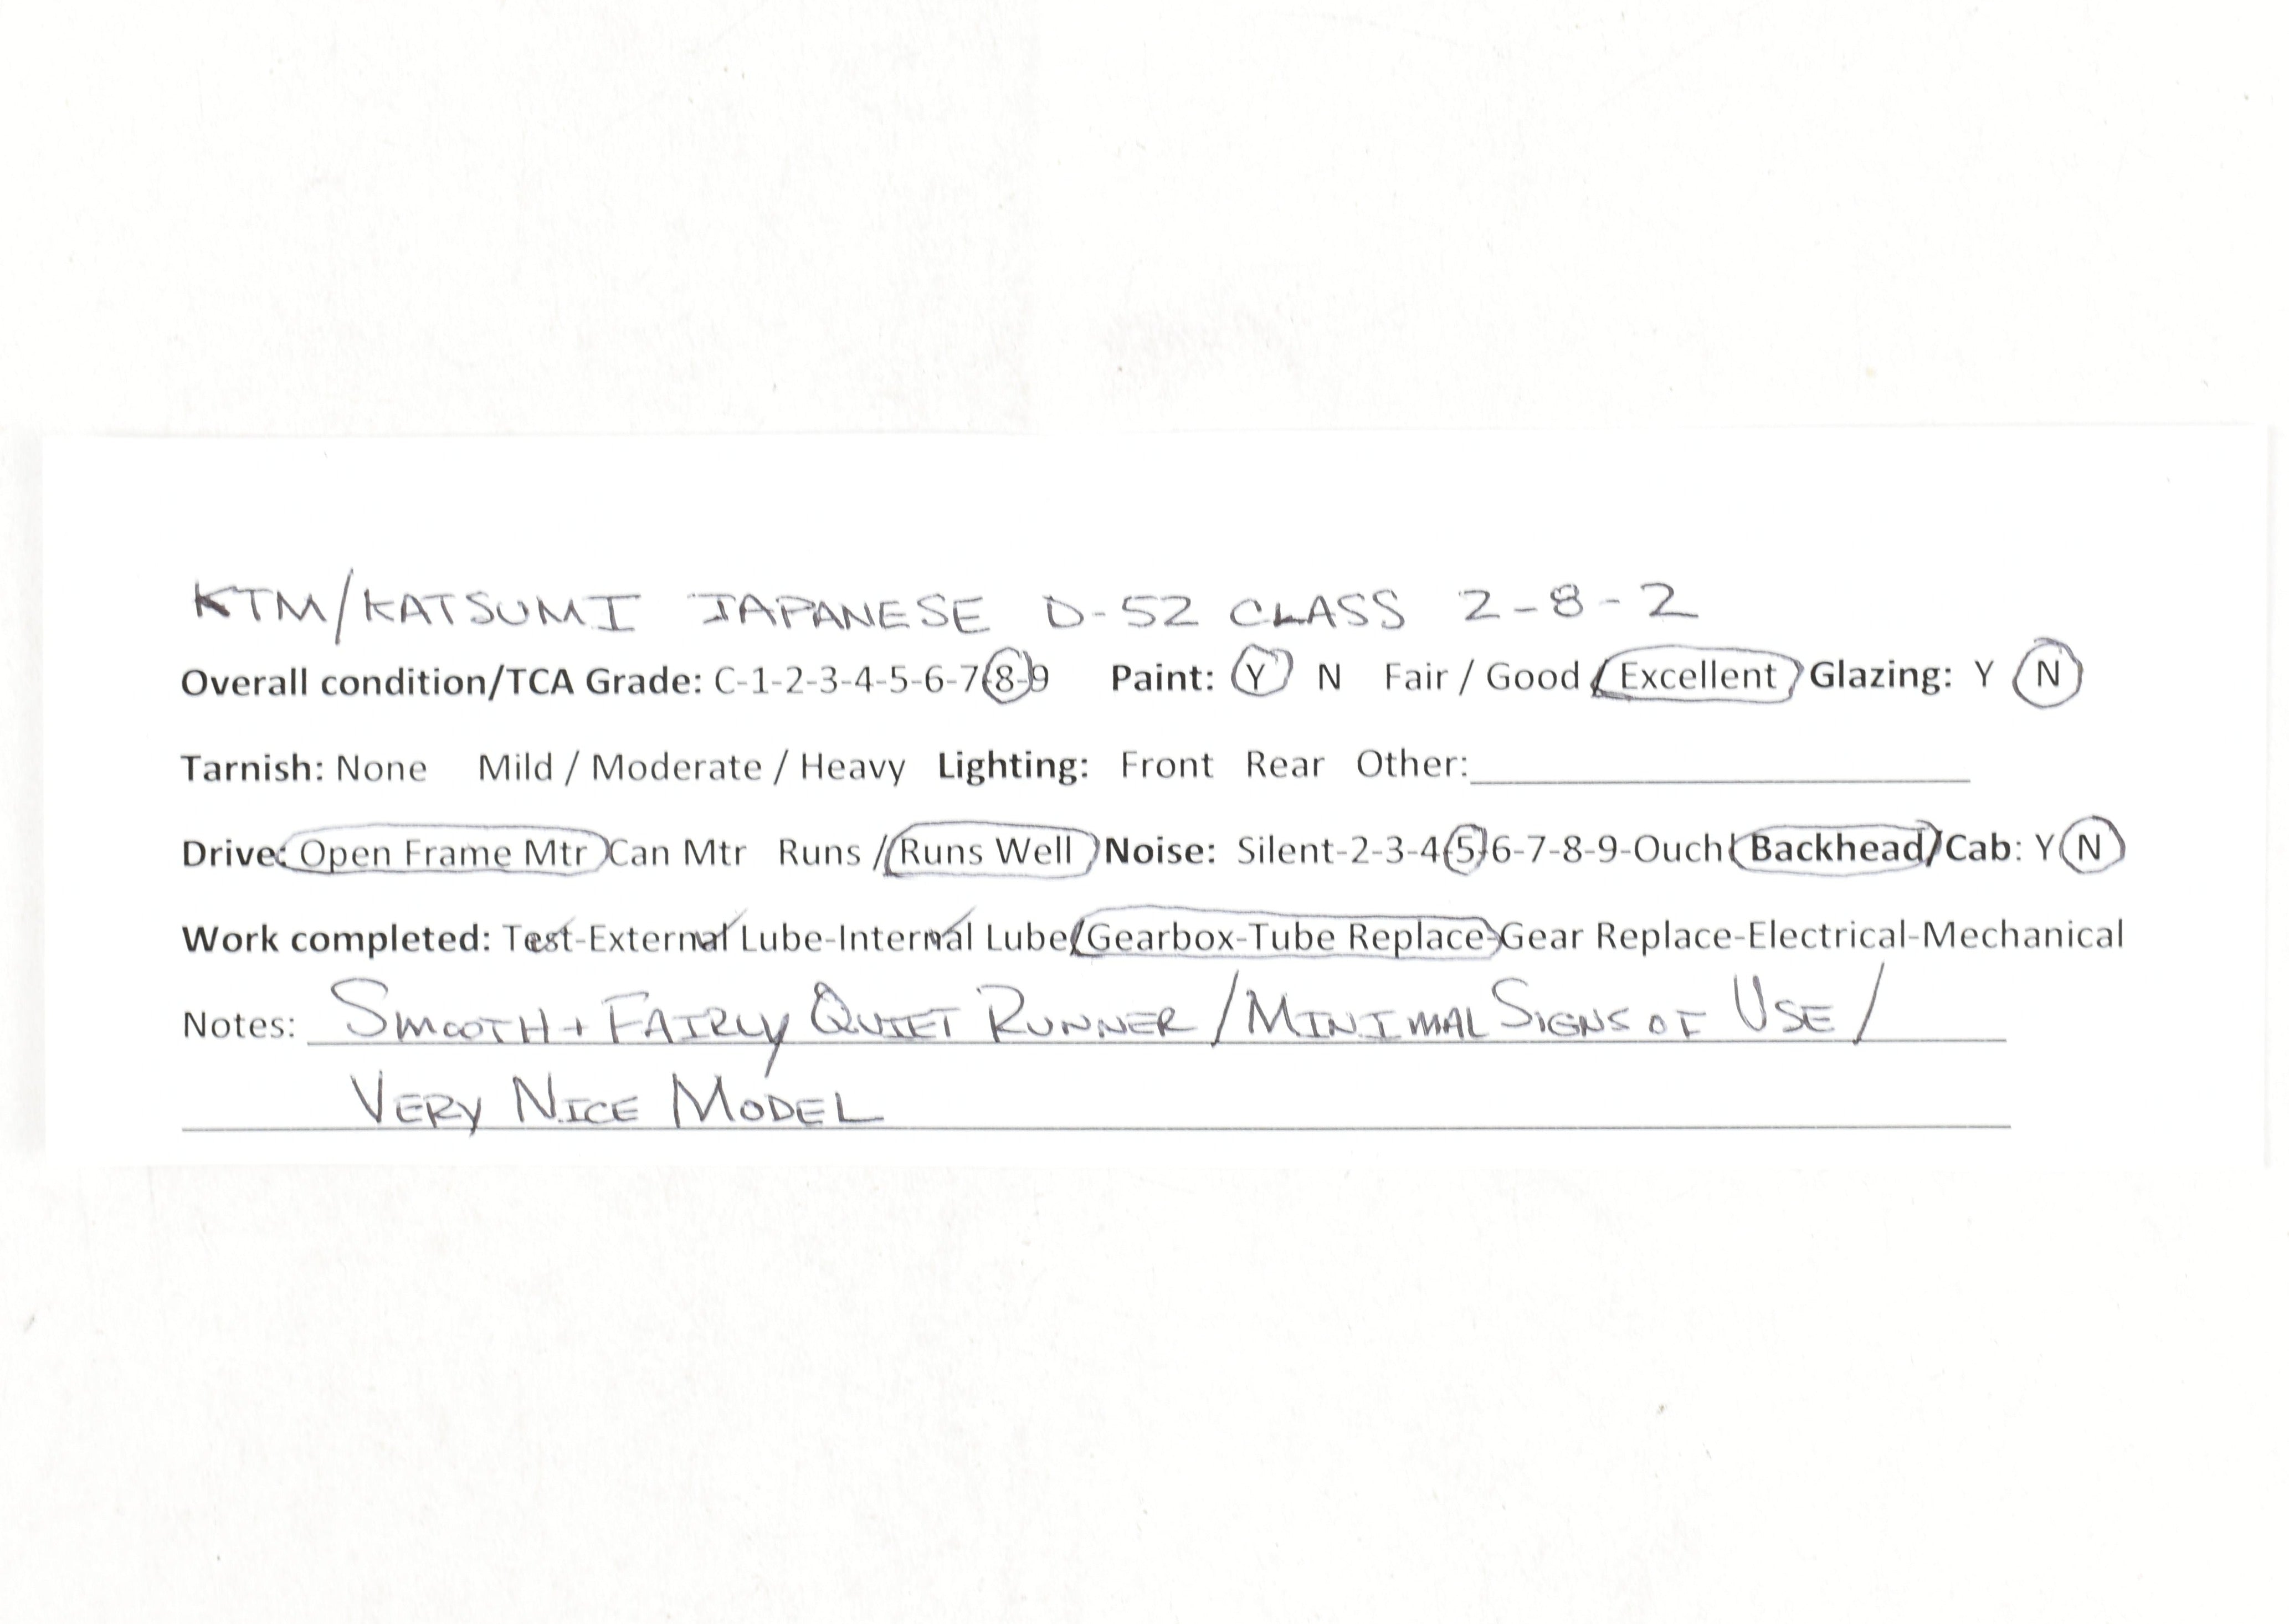 KTM/KATSUMI JAPANESE D-52 CLASS 2-8-2
Overall condition/TCA Grade: C-1-2-3-4-5-6-7-8-9 Paint: Y N Fair / Good / Excellent Glazing: Y N
Tarnish: None Mild / Moderate / Heavy Lighting: Front Rear Other:
Drive: Open Frame Mtr Can Mtr Runs / Runs Well Noise: Silent-2-3-4-5-6-7-8-9-Ouch! Backhead/Cab: Y N
Work completed: Test-External Lube-Internal Lube-Gearbox-Tube Replace-Gear Replace-Electrical-Mechanical
Notes: SMOOTH + FAIRLY QUIET RUNNER / MINIMAL SIGNS OF USE /
VERY NICE MODEL